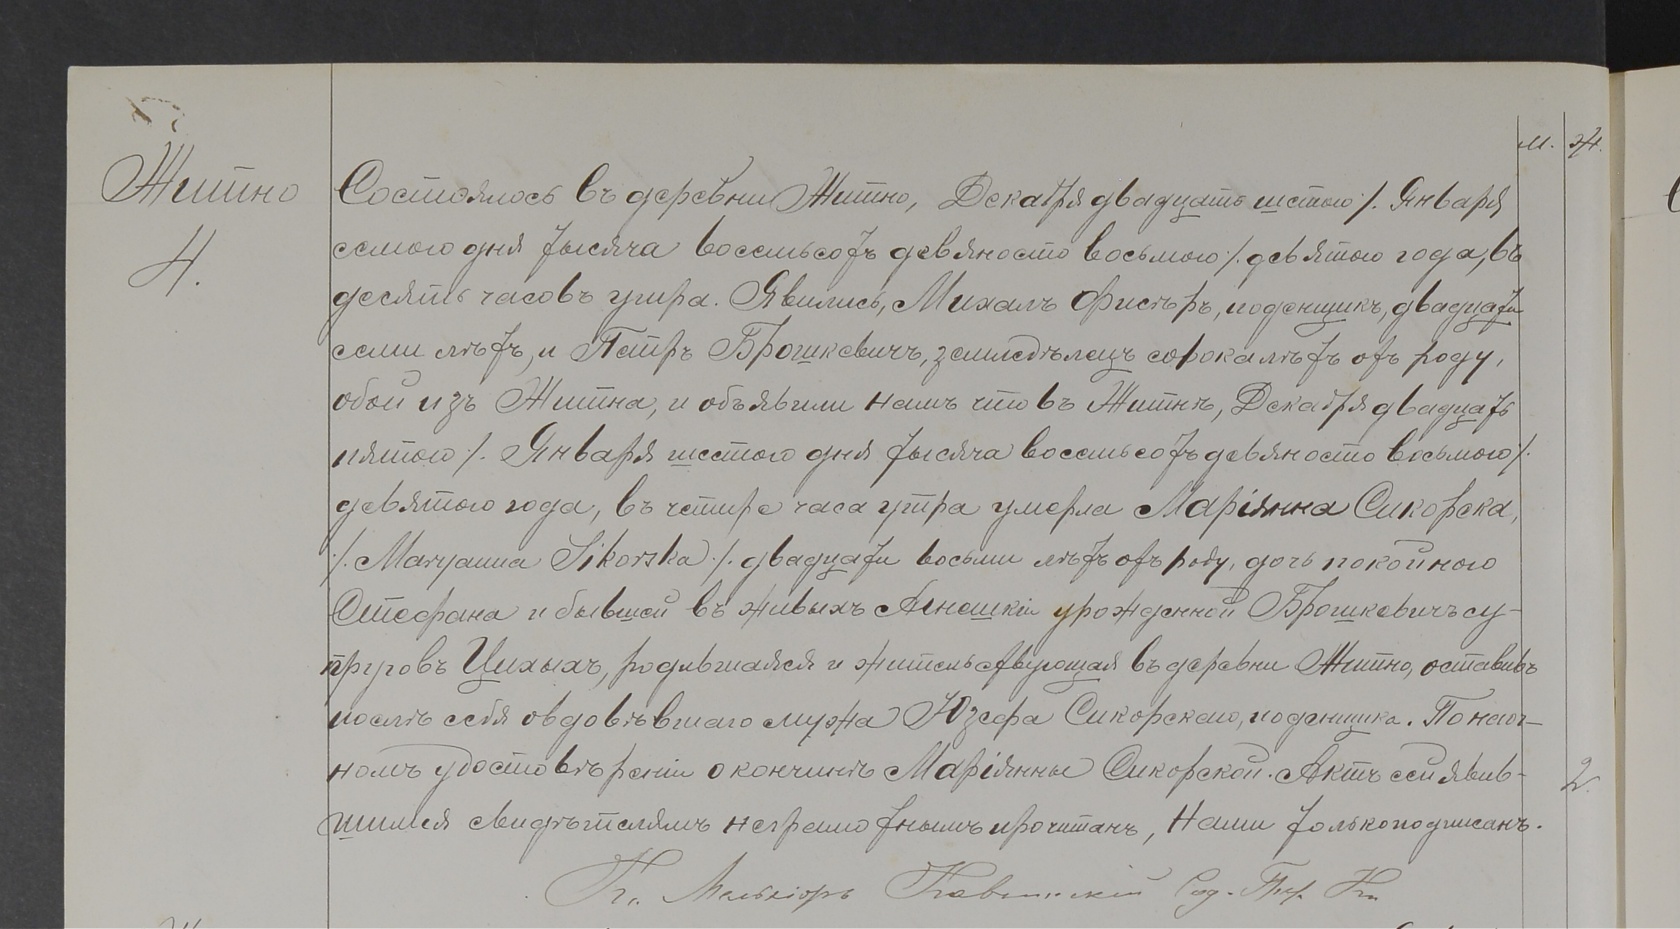 М. Ж.
Житно
4.
Состоялось въ деревни Житно, Декабря двадцать шстого /. Января
семого дня тысяча восемьсотъ девяносто восьмого /. девятого года, въ
десять часовъ утра. Явились, Михалъ Фистѣръ, поденщикъ, двадцати
семи лѣтъ, и Петръ Брошкевичъ, земледѣлецъ сорока лѣтъ отъ роду,
обои изъ Житна, и объявили намъ что въ Житнѣ, Декабря двадцать
пятого /. Января шестого дня тысяча восемьсотъ девяносто восьмого /.
девятого года, въ четире часа утра умерла Маріянна Сикорска,
/. Maryanna Sikorska ./. двадцати восьми лѣтъ отъ роду, дочь покойного
Стефана и бывшей въ живыхъ Агнешки урожденной Брошкевичъ су-
пруговъ Цихыхъ, родившаяся и жительствующая въ деревни Житно, оставивъ
послѣ себя овдовѣвшаго мужа Юзефа Сикорского, поденщика. По насто-
номъ удостовѣреніи о кончинѣ Маріянны Сикорской. Актъ сей явив-
шимся свидѣтелямъ неграмотнымъ прочитанъ, Нами только подписанъ.
2.
Кс. Мельхіоръ